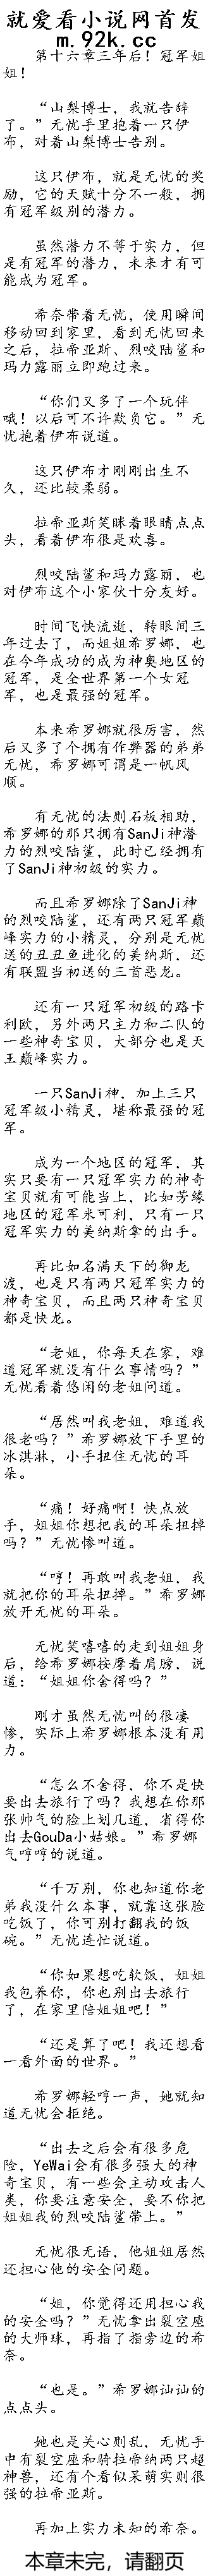 就爱看小说网首发
m.92k.cc
第十六章三年后！冠军姐
姐！
“山梨博士，我就告辞
了。”无忧手里抱着一只伊
布，对着山梨博士告别。
这只伊布，就是无忧的奖
励，它的天赋十分不一般，拥
有冠军级别的潜力。
虽然潜力不等于实力，但
是有冠军的潜力，未来才有可
能成为冠军。
希奈带着无忧，使用瞬间
移动回到家里，看到无忧回来
之后，拉帝亚斯、烈咬陆鲨和
玛力露丽立即跑过来。
“你们又多了一个玩伴
哦！以后可不许欺负它。”无
忧抱着伊布说道。
这只伊布才刚刚出生不
久，还比较柔弱。
拉帝亚斯笑眯着眼睛点点
头，看着伊布很是欢喜。
烈咬陆鲨和玛力露丽，也
对伊布这个小家伙十分友好。
时间飞快流逝，转眼间三
年过去了，而姐姐希罗娜，也
在今年成功的成为神奥地区的
冠军，是全世界第一个女冠
军，也是最强的冠军。
本来希罗娜就很厉害，然
后又多了个拥有作弊器的弟弟
无忧，希罗娜可谓是一帆风
顺。
有无忧的法则石板相助，
希罗娜的那只拥有SanJi神潜
力的烈咬陆鲨，此时已经拥有
了SanJi神初级的实力。
而且希罗娜除了SanJi神
的烈咬陆鲨，还有两只冠军巅
峰实力的小精灵，分别是无忧
送的丑丑鱼进化的美纳斯，还
有联盟当初送的三首恶龙。
还有一只冠军初级的路卡
利欧，另外两只主力和二队的
一些神奇宝贝，大部分也是天
王巅峰实力。
一只SanJi神，加上三只
冠军级小精灵，堪称最强的冠
军。
成为一个地区的冠军，其
实只要有一只冠军实力的神奇
宝贝就有可能当上，比如芳缘
地区的冠军米可利，只有一只
冠军实力的美纳斯拿的出手。
再比如名满天下的御龙
渡，也是只有两只冠军实力的
神奇宝贝，而且两只神奇宝贝
都是快龙。
“老姐，你每天在家，难
道冠军就没有什么事情吗？”
无忧看着悠闲的老姐问道。
“居然叫我老姐，难道我
很老吗？”希罗娜放下手里的
冰淇淋，小手扭住无忧的耳
朵。
“痛！好痛啊！快点放
手，姐姐你想把我的耳朵扭掉
吗？”无忧惨叫道。
“哼！再敢叫我老姐，我
就把你的耳朵扭掉。”希罗娜
放开无忧的耳朵。
无忧笑嘻嘻的走到姐姐身
后，给希罗娜按摩着肩膀，说
道：“姐姐你舍得吗？”
刚才虽然无忧叫的很凄
惨，实际上希罗娜根本没有用
力。
“怎么不舍得，你不是快
要出去旅行了吗？我想在你那
张帅气的脸上划几道，省得你
出去GouDa小姑娘。”希罗娜
气哼哼的说道。
“千万别，你也知道你老
弟我没什么本事，就靠这张脸
吃饭了，你可别打翻我的饭
碗。”无忧连忙说道。
“你如果想吃软饭，姐姐
我包养你，你也别出去旅行
了，在家里陪姐姐吧！”
“还是算了吧！我还想看
一看外面的世界。”
希罗娜轻哼一声，她就知
道无忧会拒绝。
“出去之后会有很多危
险，YeWai会有很多强大的神
奇宝贝，有一些会主动攻击人
类，你要注意安全，要不你把
姐姐我的烈咬陆鲨带上。”
无忧很无语，他姐姐居然
还担心他的安全问题。
“姐，你觉得还用担心我
的安全吗？”无忧拿出裂空座
的大师球，再指了指旁边的希
奈。
“也是。”希罗娜讪讪的
点点头。
她也是关心则乱，无忧手
中有裂空座和骑拉帝纳两只超
神兽，还有个看似呆萌实则很
强的拉帝亚斯。
再加上实力未知的希奈。
本章未完，请翻页